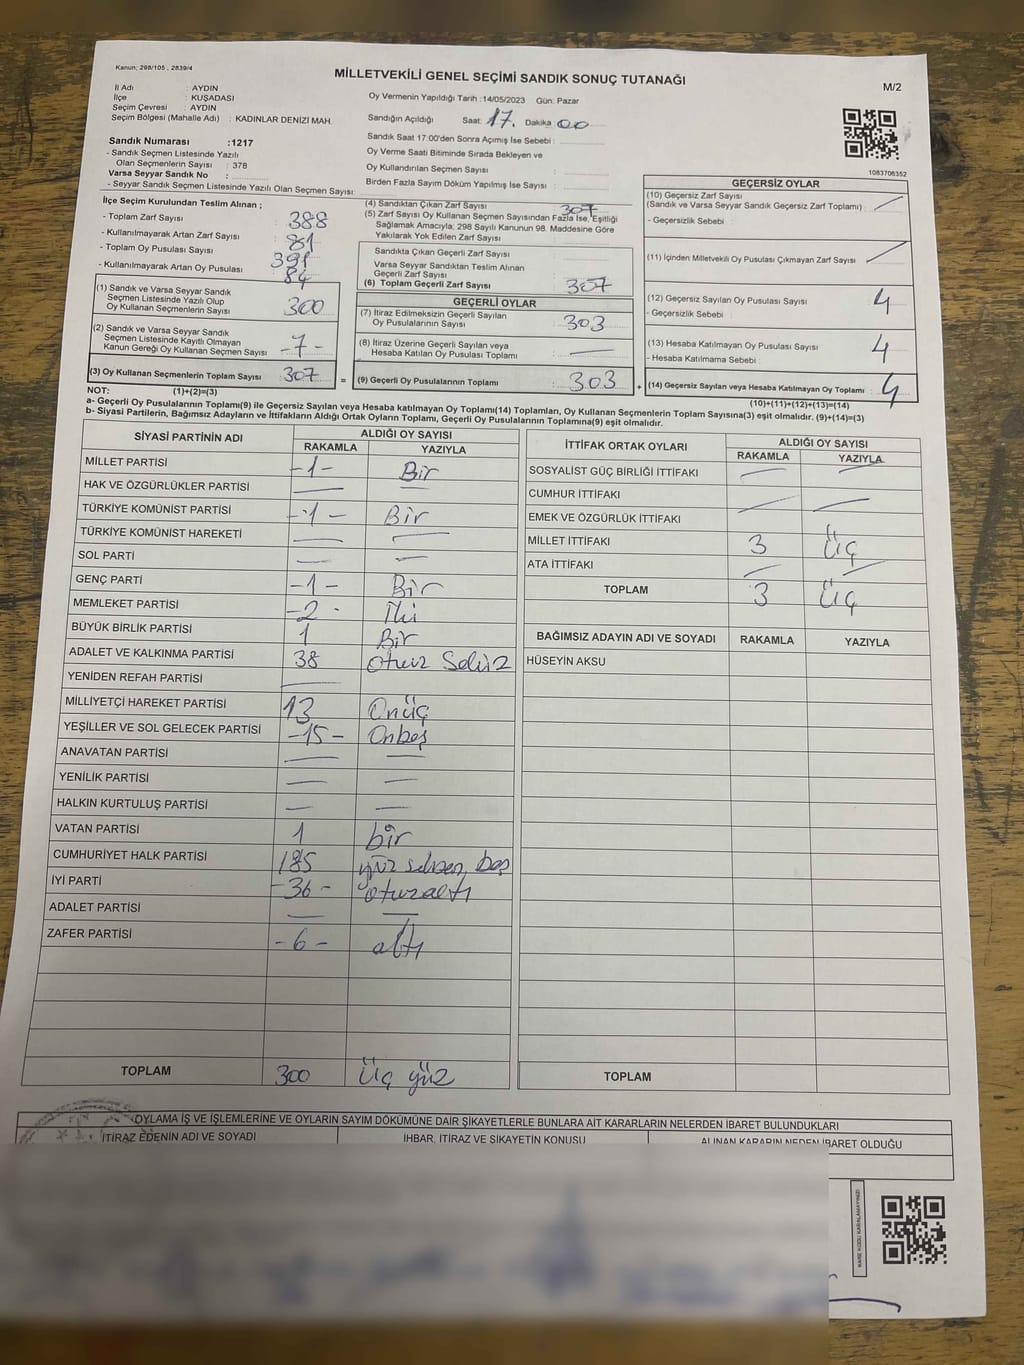 Kanun: 298/105 , 2839/4
MİLLETVEKİLİ GENEL SEÇİMİ SANDIK SONUÇ TUTANAĞI
M/2
İl Adı : AYDIN
İlçe : KUŞADASI
Seçim Çevresi : AYDIN
Seçim Bölgesi (Mahalle Adı) : KADINLAR DENİZİ MAH.
Sandık Numarası :1217
- Sandık Seçmen Listesinde Yazılı
Olan Seçmenlerin Sayısı : 378
Varsa Seyyar Sandık No :
- Seyyar Sandık Seçmen Listesinde Yazılı Olan Seçmen Sayısı:
Oy Vermenin Yapıldığı Tarih :14/05/2023 Gün: Pazar
Sandığın Açıldığı Saat: 17. Dakika 00
Sandık Saat 17:00'den Sonra Açımış İse Sebebi :
Oy Verme Saati Bitiminde Sırada Bekleyen ve
Oy Kullandırılan Seçmen Sayısı :
Birden Fazla Sayım Döküm Yapılmış İse Sayısı :
1083706352
İlçe Seçim Kurulundan Teslim Alınan ;
- Toplam Zarf Sayısı : 388
- Kullanılmayarak Artan Zarf Sayısı : 81
- Toplam Oy Pusulası Sayısı 391
- Kullanılmayarak Artan Oy Pusulası 84
(1) Sandık ve Varsa Seyyar Sandık
Seçmen Listesinde Yazılı Olup
Oy Kullanan Seçmenlerin Sayısı 300
(2) Sandık ve Varsa Seyyar Sandık
Seçmen Listesinde Kayıtlı Olmayan
Kanun Gereği Oy Kullanan Seçmen Sayısı -7-
(3) Oy Kullanan Seçmenlerin Toplam Sayısı 307
(4) Sandıktan Çıkan Zarf Sayısı 307
(5) Zarf Sayısı Oy Kullanan Seçmen Sayısından Fazla İse, Eşitliği
Sağlamak Amacıyla; 298 Sayılı Kanunun 98. Maddesine Göre
Yakılarak Yok Edilen Zarf Sayısı
Sandıkta Çıkan Geçerli Zarf Sayısı
Varsa Seyyar Sandıktan Teslim Alınan
Geçerli Zarf Sayısı
(6) Toplam Geçerli Zarf Sayısı 307
GEÇERLİ OYLAR
(7) İtiraz Edilmeksizin Geçerli Sayılan
Oy Pusulalarının Sayısı 303
(8) İtiraz Üzerine Geçerli Sayılan veya
Hesaba Katılan Oy Pusulası Toplamı —
= (9) Geçerli Oy Pusulalarının Toplamı 303
GEÇERSİZ OYLAR
(10) Geçersiz Zarf Sayısı
(Sandık ve Varsa Seyyar Sandık Geçersiz Zarf Toplamı) : —
- Geçersizlik Sebebi :
(11) İçinden Milletvekili Oy Pusulası Çıkmayan Zarf Sayısı —
(12) Geçersiz Sayılan Oy Pusulası Sayısı 4
- Geçersizlik Sebebi :
(13) Hesaba Katılmayan Oy Pusulası Sayısı 4
- Hesaba Katılmama Sebebi :
+ (14) Geçersiz Sayılan veya Hesaba Katılmayan Oy Toplamı : 4
NOT: (1)+(2)=(3)
(10)+(11)+(12)+(13)=(14)
a- Geçerli Oy Pusulalarının Toplamı(9) ile Geçersiz Sayılan veya Hesaba katılmayan Oy Toplamı(14) Toplamları, Oy Kullanan Seçmenlerin Toplam Sayısına(3) eşit olmalıdır. (9)+(14)=(3)
b- Siyasi Partilerin, Bağımsız Adayların ve İttifakların Aldığı Ortak Oyların Toplamı, Geçerli Oy Pusulalarının Toplamına(9) eşit olmalıdır.
SİYASİ PARTİNİN ADI ALDIĞI OY SAYISI
RAKAMLA YAZIYLA
MİLLET PARTİSİ -1- Bir
HAK VE ÖZGÜRLÜKLER PARTİSİ — —
TÜRKİYE KOMÜNİST PARTİSİ -1- Bir
TÜRKİYE KOMÜNİST HAREKETİ — —
SOL PARTİ — —
GENÇ PARTİ -1- Bir
MEMLEKET PARTİSİ -2- İki
BÜYÜK BİRLİK PARTİSİ 1 Bir
ADALET VE KALKINMA PARTİSİ 38 otuz Sekiz
YENİDEN REFAH PARTİSİ —
MİLLİYETÇİ HAREKET PARTİSİ 13 Onüç
YEŞİLLER VE SOL GELECEK PARTİSİ -15- Onbeş
ANAVATAN PARTİSİ — —
YENİLİK PARTİSİ — —
HALKIN KURTULUŞ PARTİSİ — —
VATAN PARTİSİ 1 bir
CUMHURİYET HALK PARTİSİ 185 yüz seksen beş
İYİ PARTİ -36- oturaltı
ADALET PARTİSİ — —
ZAFER PARTİSİ -6- altı
TOPLAM 300 Üç yüz
İTTİFAK ORTAK OYLARI ALDIĞI OY SAYISI
RAKAMLA YAZIYLA
SOSYALİST GÜÇ BİRLİĞİ İTTİFAKI — —
CUMHUR İTTİFAKI
EMEK VE ÖZGÜRLÜK İTTİFAKI — —
MİLLET İTTİFAKI 3 Üç
ATA İTTİFAKI — —
TOPLAM 3 Üç
BAĞIMSIZ ADAYIN ADI VE SOYADI RAKAMLA YAZIYLA
HÜSEYİN AKSU
TOPLAM
OYLAMA İŞ VE İŞLEMLERİNE VE OYLARIN SAYIM DÖKÜMÜNE DAİR ŞİKAYETLERLE BUNLARA AİT KARARLARIN NELERDEN İBARET BULUNDUKLARI
İTİRAZ EDENİN ADI VE SOYADI İHBAR, İTİRAZ VE ŞİKAYETİN KONUSU ALINAN KARARIN NEDEN İBARET OLDUĞU
KARE KODU KARALAMAYINIZ!